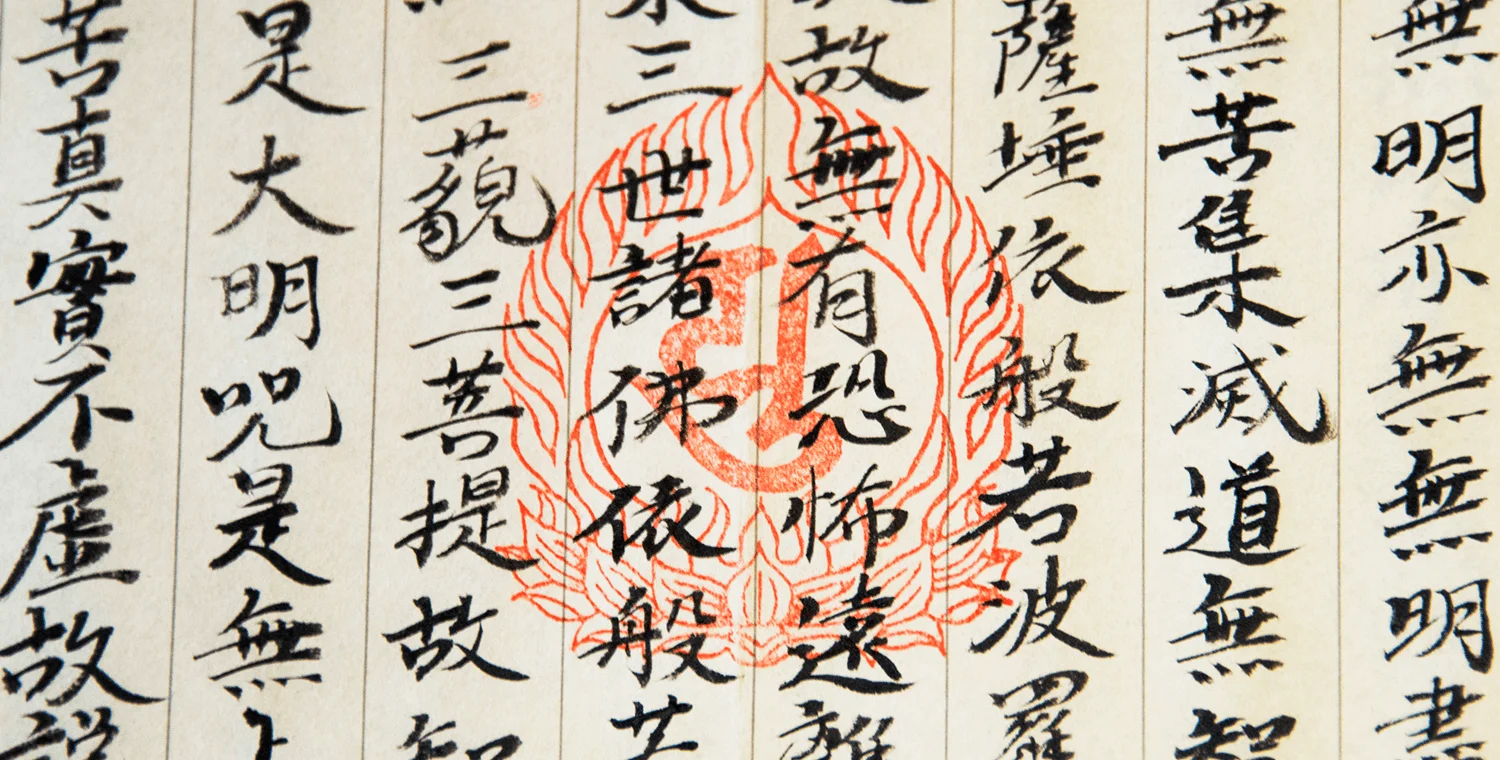 無明亦無無明盡
無苦集滅道無智
薩埵依般若波羅
故無有恐怖遠離
三世諸佛依般若
三藐三菩提故知
是大明咒是無上
苦真實不虛故說